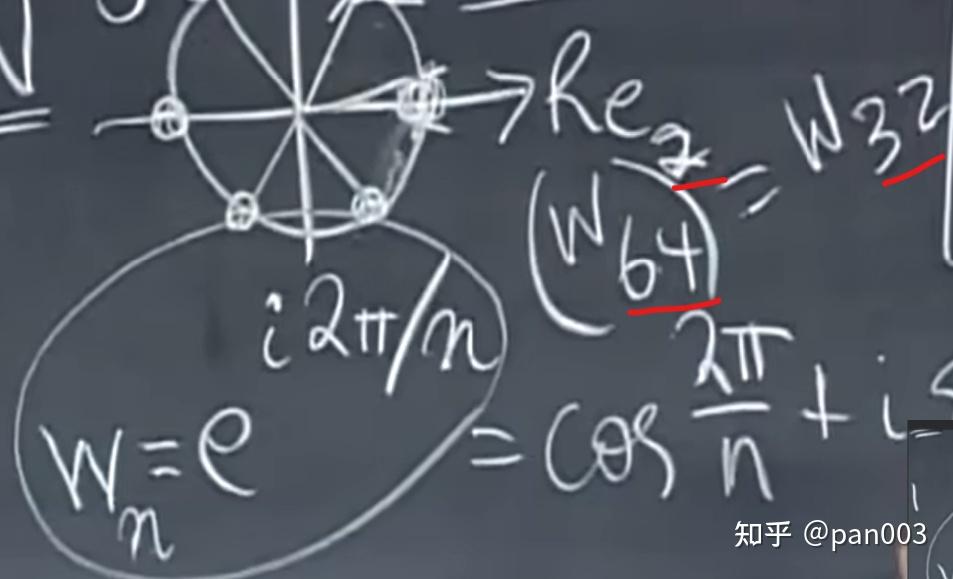 Re
(W₆₄)² = W₃₂
Wₙ = e^{i2π/n} = cos 2π/n + i
知乎 @pan003